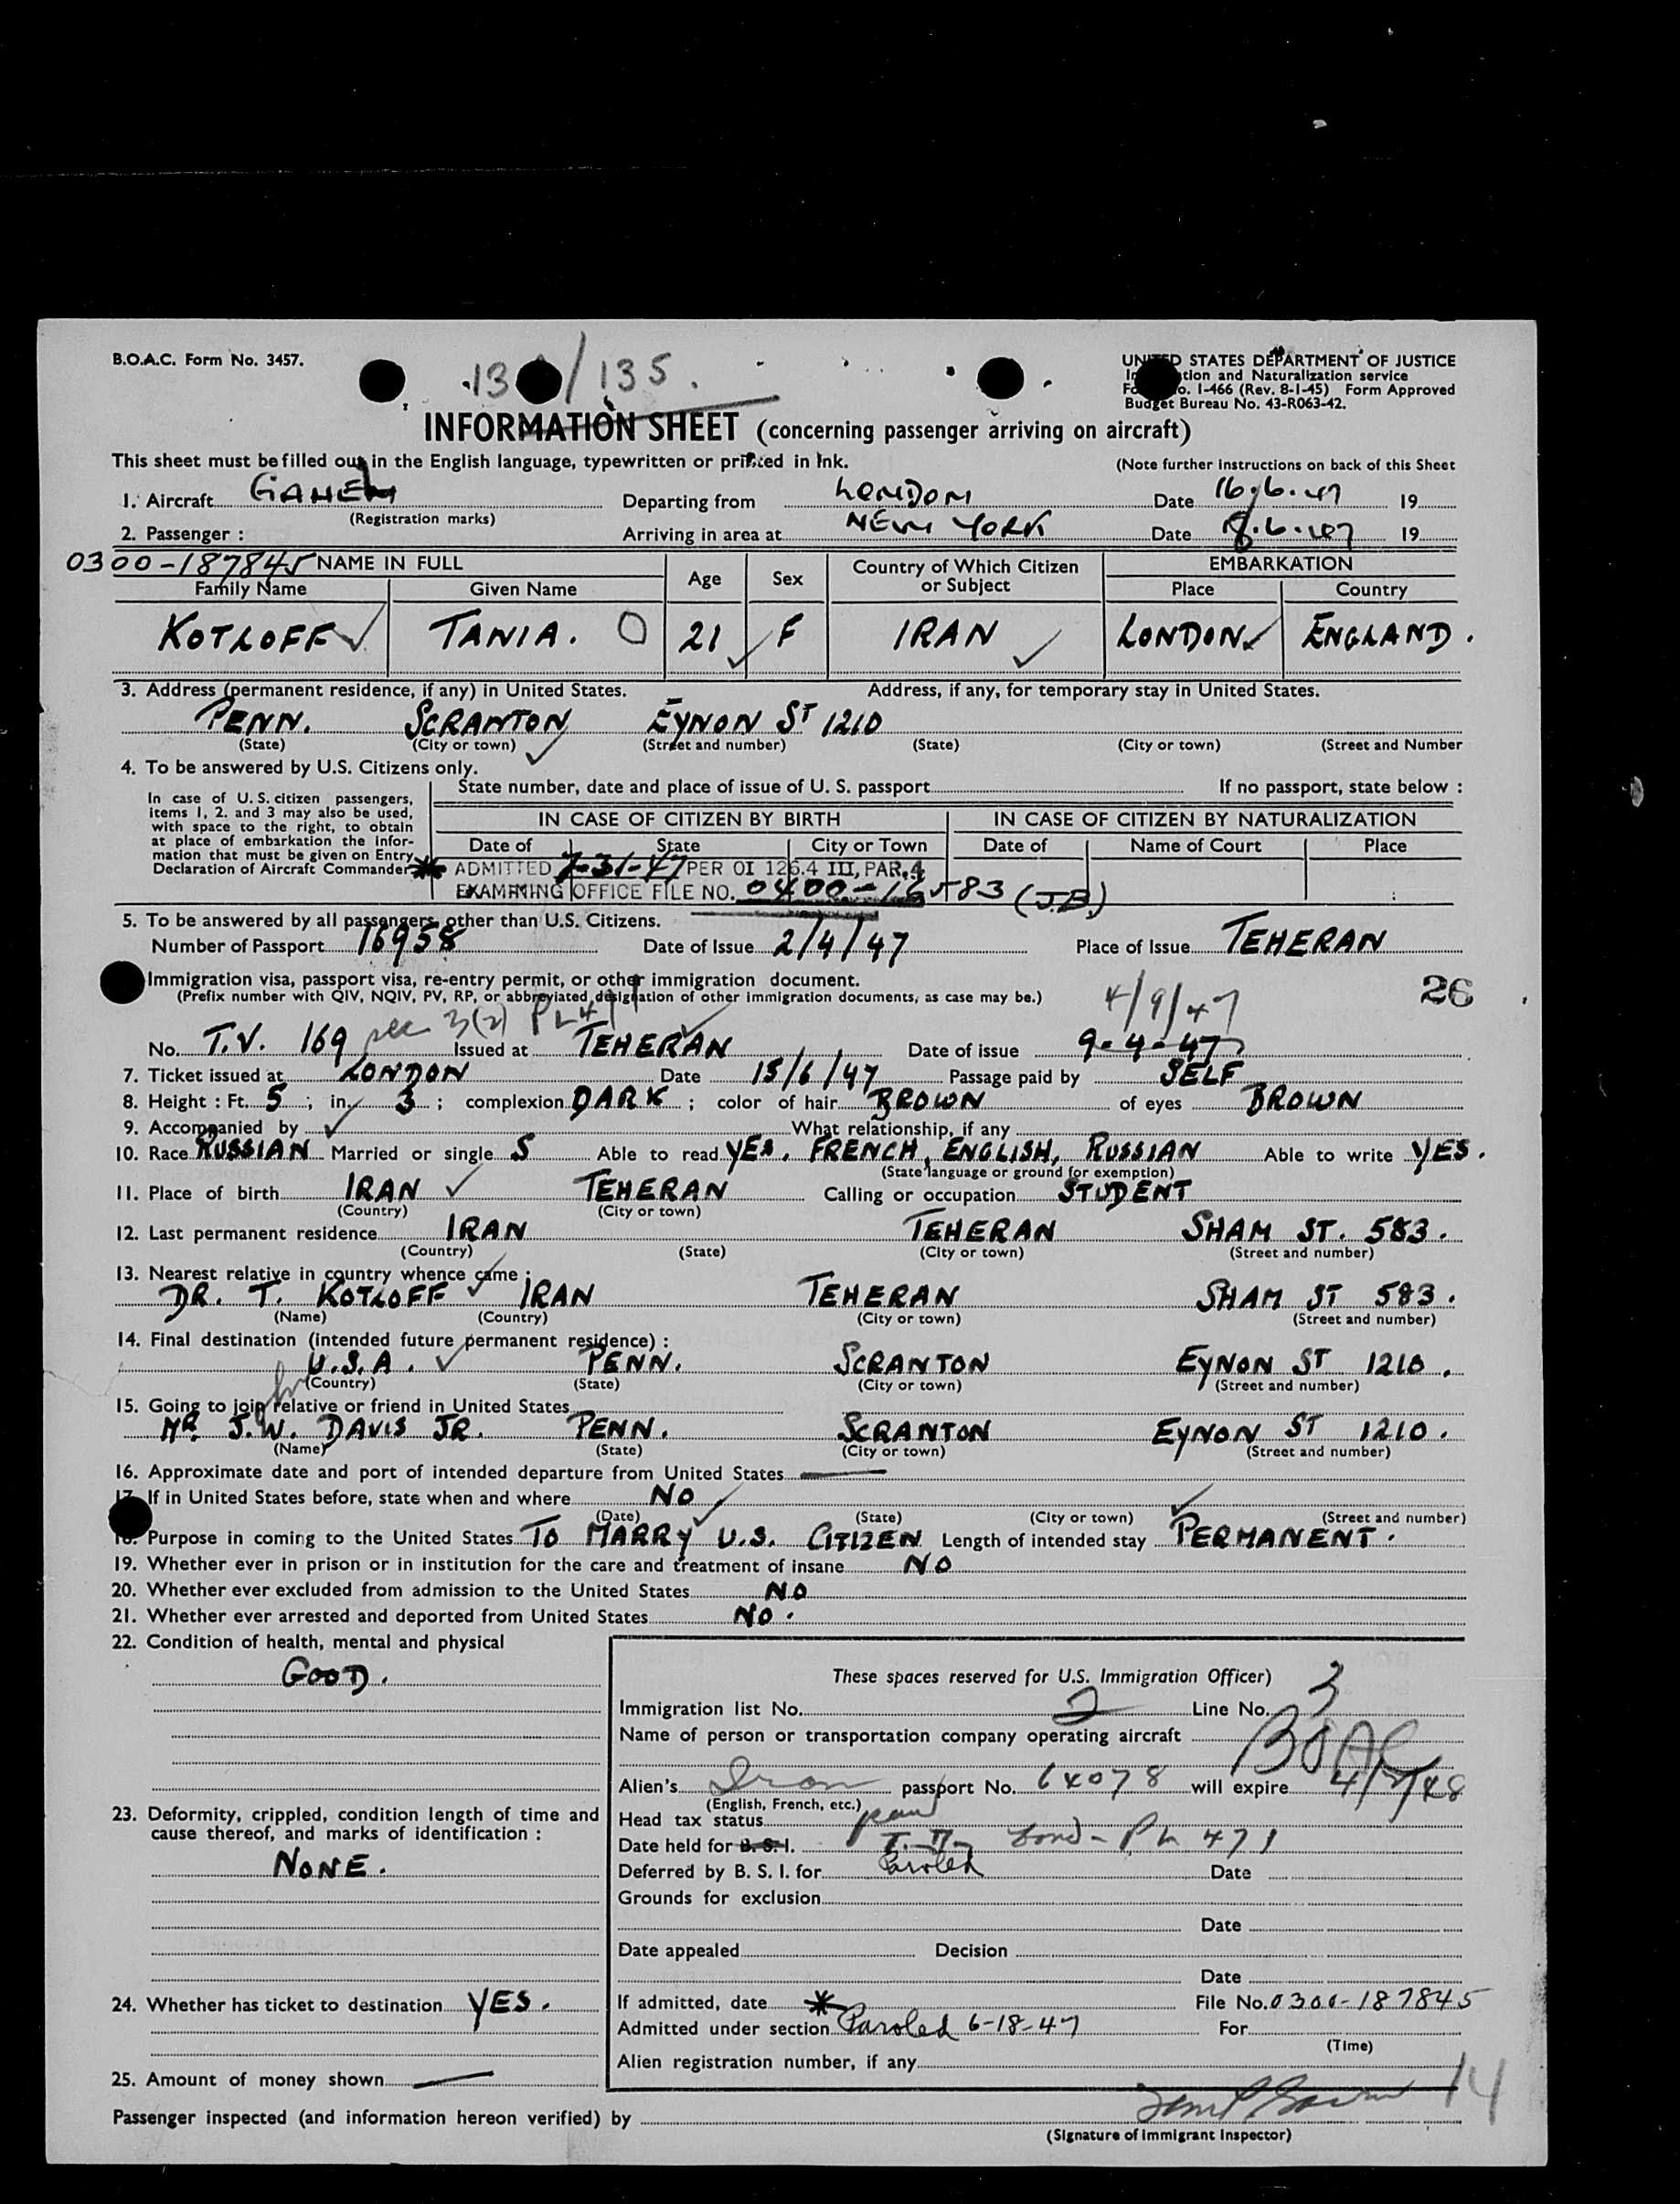 B.O.A.C. Form No. 3457.
/135.
UNITED STATES DEPARTMENT OF JUSTICE
Immigration and Naturalization service
Form No. I-466 (Rev. 8-1-45) Form Approved
Budget Bureau No. 43-R063-42.
INFORMATION SHEET (concerning passenger arriving on aircraft)
This sheet must be filled out in the English language, typewritten or printed in Ink.
(Note further Instructions on back of this Sheet
1. Aircraft GAHEN Departing from LONDON Date 16.6.47 19
(Registration marks)
2. Passenger : Arriving in area at NEW YORK Date 18.6.47 19
0300-187845 NAME IN FULL Age Sex Country of Which Citizen or Subject EMBARKATION
Family Name Given Name Place Country
KOTLOFF TANIA. 21 F IRAN LONDON ENGLAND.
3. Address (permanent residence, if any) in United States. Address, if any, for temporary stay in United States.
PENN. SCRANTON EYNON ST 1210
(State) (City or town) (Street and number) (State) (City or town) (Street and Number
4. To be answered by U.S. Citizens only.
State number, date and place of issue of U. S. passport If no passport, state below :
In case of U.S. citizen passengers,
items 1, 2. and 3 may also be used,
with space to the right, to obtain
at place of embarkation the infor-
mation that must be given on Entry
Declaration of Aircraft Commander
IN CASE OF CITIZEN BY BIRTH IN CASE OF CITIZEN BY NATURALIZATION
Date of State City or Town Date of Name of Court Place
ADMITTED 7-31-47 PER OI 126.4 III, PAR.4
EXAMINING OFFICE FILE NO. 0400-16583 (J.B.)
5. To be answered by all passengers other than U.S. Citizens.
Number of Passport 16958 Date of Issue 2/4/47 Place of Issue TEHERAN
Immigration visa, passport visa, re-entry permit, or other immigration document.
(Prefix number with QIV, NQIV, PV, RP, or abbreviated designation of other immigration documents, as case may be.)
4/9/47 26
No. T.V. 169 sec 3(2) PL471 Issued at TEHERAN Date of issue 9-4-47
7. Ticket issued at LONDON Date 15/6/47 Passage paid by SELF
8. Height : Ft. 5 ; in. 3 ; complexion DARK ; color of hair BROWN of eyes BROWN
9. Accompanied by What relationship, if any
10. Race RUSSIAN Married or single S Able to read YES. FRENCH, ENGLISH, RUSSIAN Able to write YES.
(State language or ground for exemption)
11. Place of birth IRAN TEHERAN Calling or occupation STUDENT
(Country) (City or town)
12. Last permanent residence IRAN TEHERAN SHAM ST. 583.
(Country) (State) (City or town) (Street and number)
13. Nearest relative in country whence came :
DR. T. KOTLOFF IRAN TEHERAN SHAM ST 583.
(Name) (Country) (City or town) (Street and number)
14. Final destination (intended future permanent residence) :
U.S.A. PENN. SCRANTON EYNON ST 1210.
(Country) (State) (City or town) (Street and number)
15. Going to join relative or friend in United States
MR. J.W. DAVIS JR. PENN. SCRANTON EYNON ST 1210.
(Name) (State) (City or town) (Street and number)
16. Approximate date and port of intended departure from United States —
17. If in United States before, state when and where NO
(Date) (State) (City or town) (Street and number)
18. Purpose in coming to the United States TO MARRY U.S. CITIZEN Length of intended stay PERMANENT.
19. Whether ever in prison or in institution for the care and treatment of insane NO
20. Whether ever excluded from admission to the United States NO
21. Whether ever arrested and deported from United States NO.
22. Condition of health, mental and physical
GOOD.
These spaces reserved for U.S. Immigration Officer)
Immigration list No. 2 Line No. 3
Name of person or transportation company operating aircraft BOAC
Alien's Iran passport No. 64078 will expire 4/2/48
(English, French, etc.)
23. Deformity, crippled, condition length of time and
cause thereof, and marks of identification :
NONE.
Head tax status
Date held for B. S. I. Bond - PL 471
Deferred by B. S. I. for Paroled Date
Grounds for exclusion
Date
Date appealed Decision
Date
24. Whether has ticket to destination YES.
If admitted, date File No. 0300-187845
Admitted under section Paroled 6-18-47 For
(Time)
Alien registration number, if any
25. Amount of money shown —
14
Passenger inspected (and information hereon verified) by
(Signature of Immigrant Inspector)